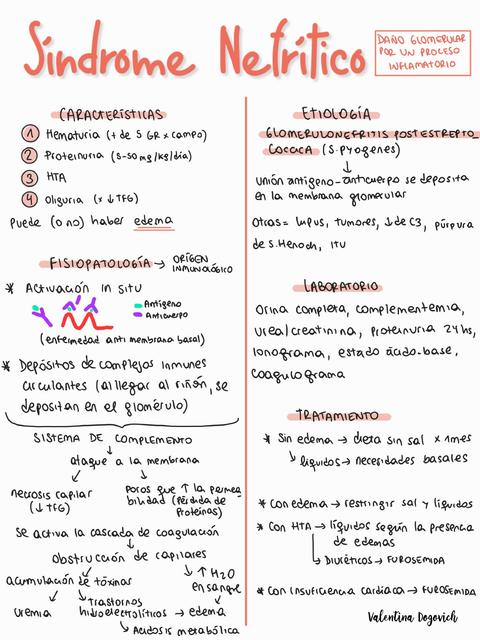 Síndrome Nefrítico
DAÑO GLOMERULAR
POR UN PROCESO
INFLAMATORIO
CARACTERÍSTICAS
1 Hematuria (+ de 5 GR x campo)
2 Proteinuria (5-50 mg/kg/día)
3 HTA
4 Oliguria (x ↓TFG)
Puede (o no) haber edema
FISIOPATOLOGÍA → ORÍGEN
INMUNOLÓGICO
* Activación in situ
Antígeno
Anticuerpo
(enfermedad anti membrana basal)
* Depósitos de complejos inmunes
circulantes (al llegar al riñón, se
depositan en el glomérulo)
SISTEMA DE COMPLEMENTO
↓
ataque a la membrana
necrosis capilar
(↓TFG)
Poros que ↑ la permea
bilidad (Pérdida de
Proteínas)
Se activa la cascada de coagulación
↓
obstrucción de capilares
acumulación de tóxinas
↓ ↑ H2O
en sangre
uremia
↳ Trastornos
hidroelectrolíticos → edema
↳ Acidosis metabólica
ETIOLOGÍA
GLOMERULONEFRITIS POSTESTREPTO_
COCCICA (S. Pyogenes)
↓
Unión antigeno-anticuerpo se deposita
en la membrana glomerular
Otras = lupus, tumores, ↓ de C3, púrpura
de S. Henoch, ITU
LABORATORIO
Orina completa, complementemia,
Urea/creatinina, Proteinuria 24hs,
Ionograma, estado ácido-base,
Coagulograma
TRATAMIENTO
* Sin edema → dieta sin sal x 1mes
↳ líquidos → necesidades basales
* Con edema → restringir sal y líquidos
* Con HTA → líquidos según la presencia
de edemas
↳ Diuréticos → FUROSEMIDA
* Con insuficiencia cardíaca → FUROSEMIDA
Valentina Dogovich